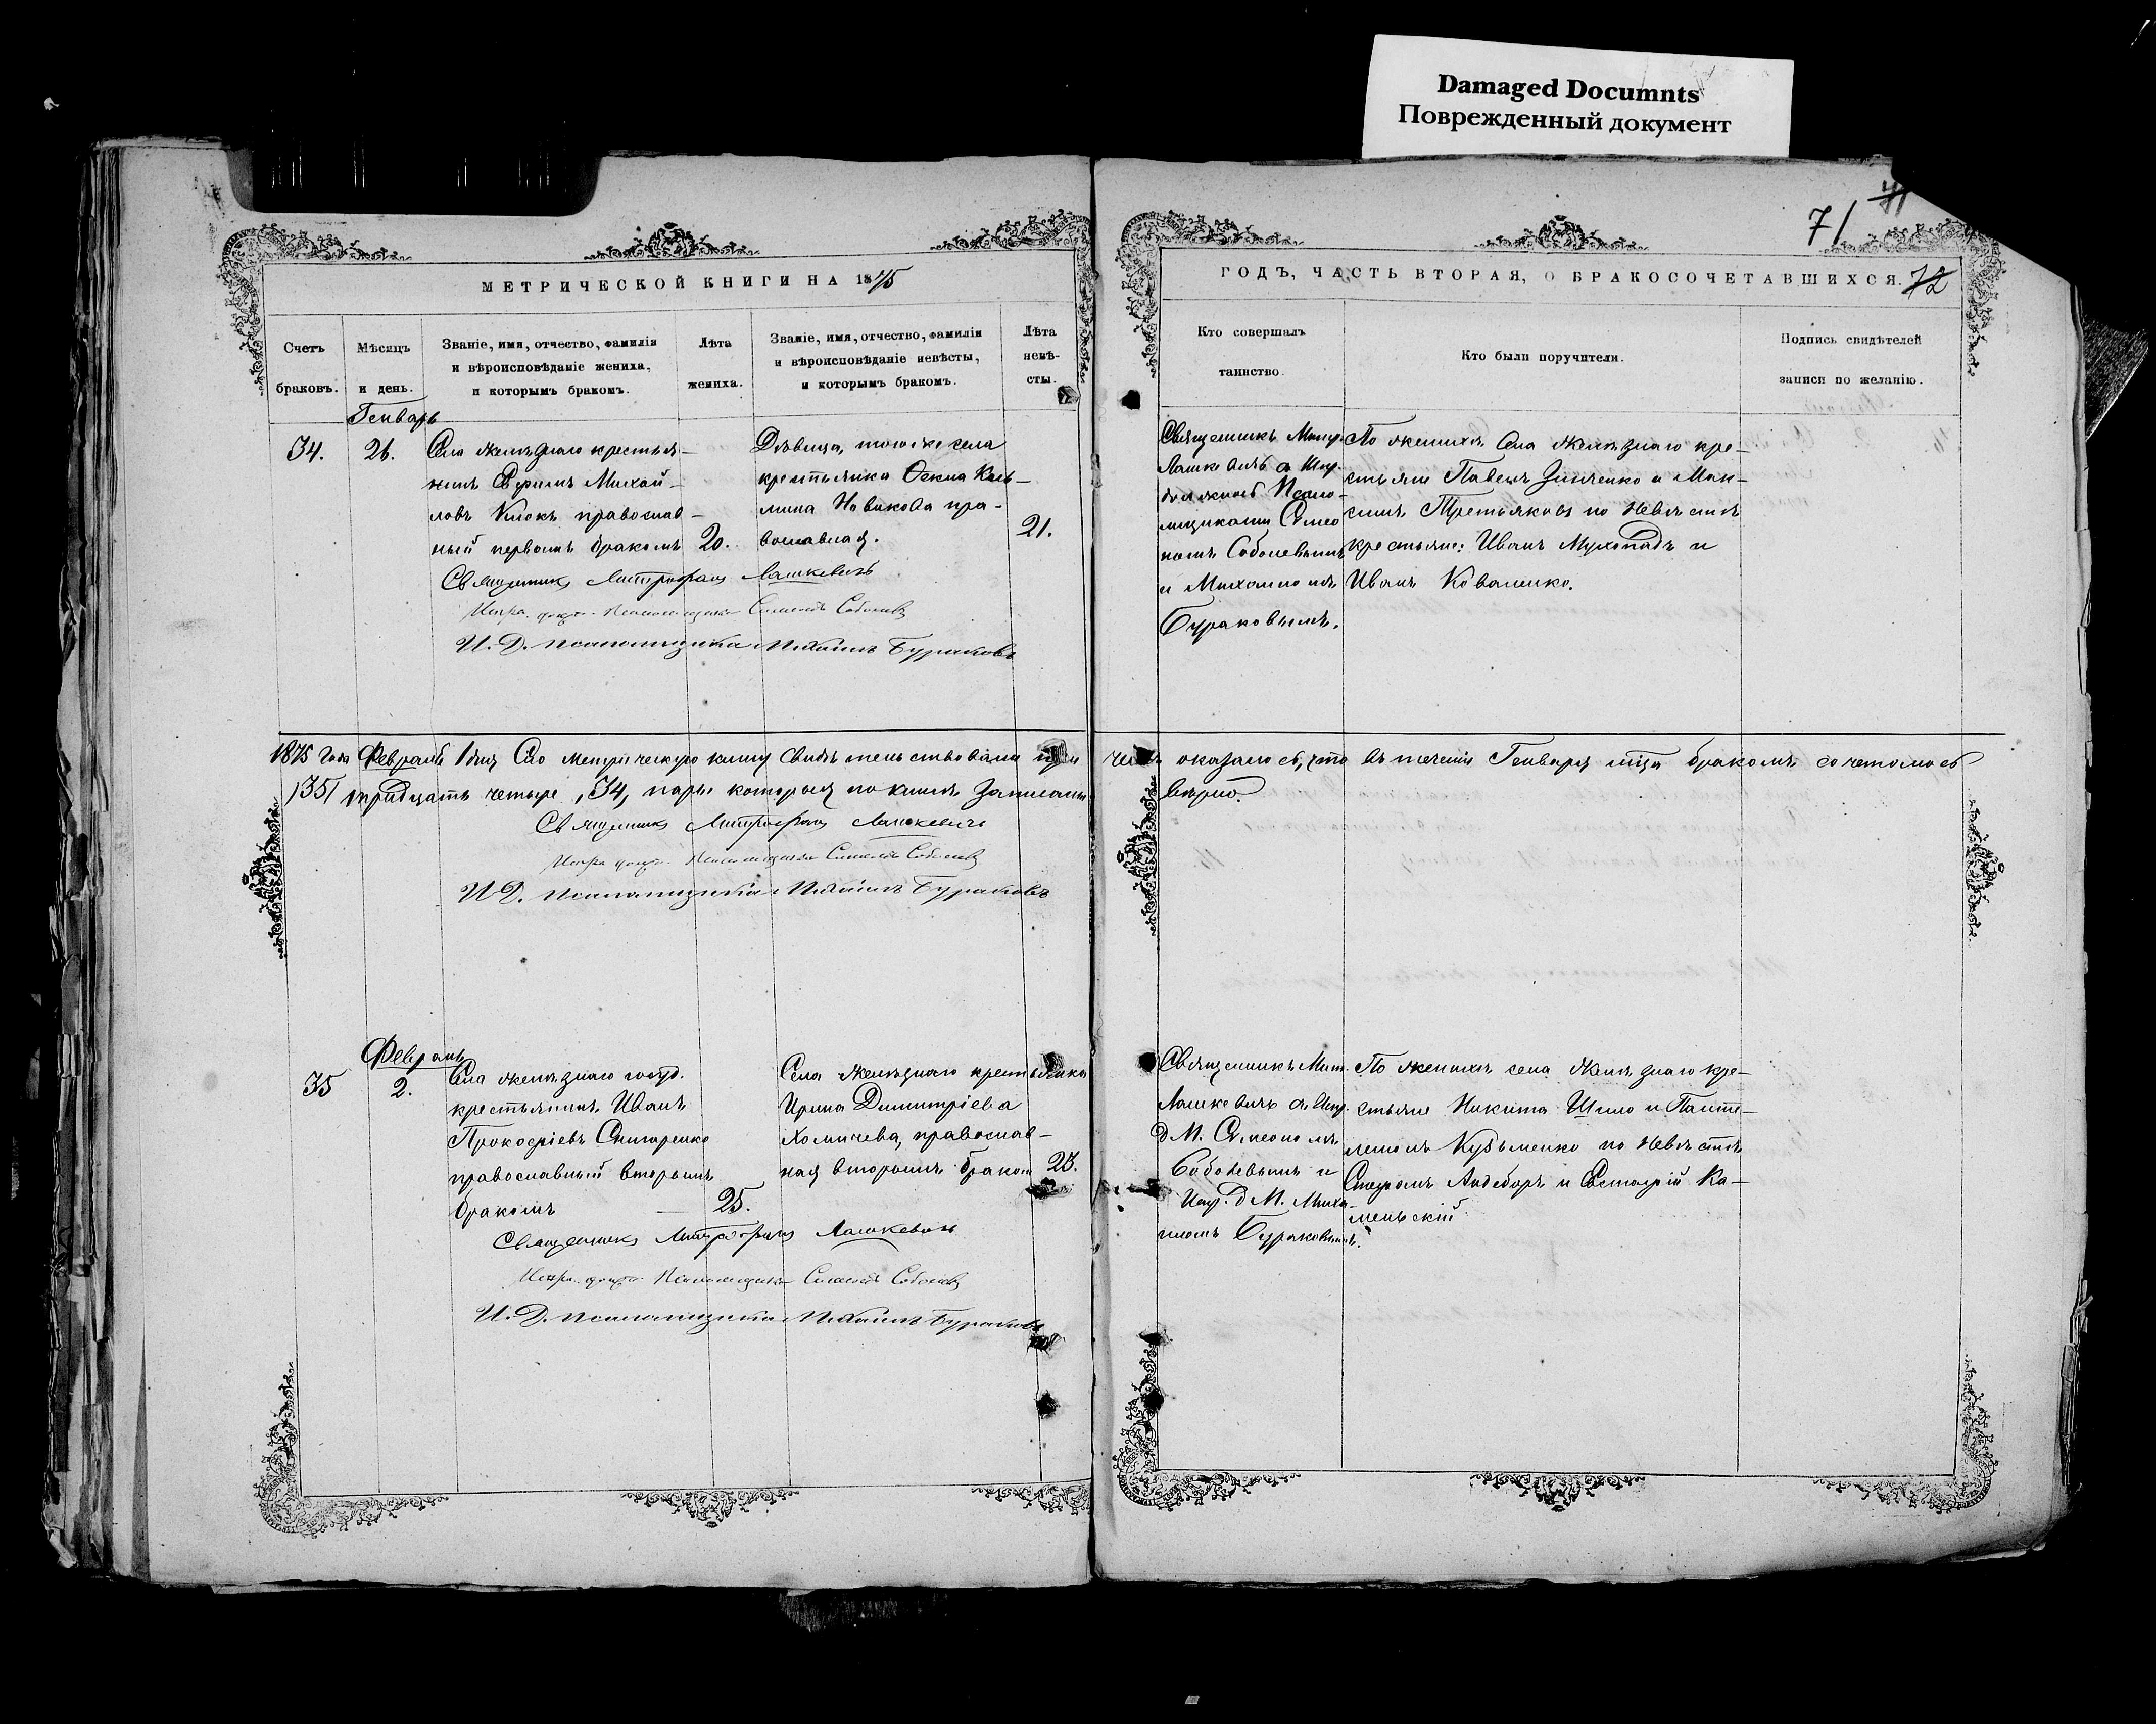 Damaged Documnts
Поврежденный документ
71
МЕТРИЧЕСКОЙ КНИГИ НА 1875
ГОДЪ, ЧАСТЬ ВТОРАЯ, О БРАКОСОЧЕТАВШИХСЯ. 72
Счетъ браковъ.
Мѣсяцъ и день.
Званіе, имя, отчество, фамилія
и вѣроисповѣданіе жениха,
и которымъ бракомъ.
Лѣта жениха.
Званіе, имя, отчество, фамилія
и вѣроисповѣданіе невѣсты,
и которымъ бракомъ.
Лѣта
невѣ-
сты.
Кто совершалъ
таинство.
Кто были поручители.
Подпись свидѣтелей
записи по желанію.
Генварь
34.
26.
Села желѣзнаго крестья-
нинъ Ефимъ Михай-
ловъ Клокъ православ-
ный первымъ бракомъ
20.
Дѣвица, того же села
крестьянка Ѳекла Кось-
мина Новикова пра-
вославная.
21.
Священникъ Митр.
Лашкевичъ съ Испр.
должность Псало-
мщиками Симео
номъ Соболевымъ
и Михаиломъ
Бураковымъ.
По женихѣ Села Желѣзнаго кре-
стьяне Павелъ Зинченко и Мак-
симъ Третьяковъ по Невѣстѣ
крестьяне: Иванъ Мухопадъ и
Иванъ Коваленко.
Священникъ Митрофанъ Лашкевичъ
Испр. долж. Псаломщика Симеонъ Соболевъ
И. Д. псаломщика Михаилъ Бураковъ
1875 года Февраля 1 дня Сію метрическую книгу свидѣтельствовали при чемъ оказалось, что въ теченіи Генваря мца бракомъ сочеталось
тридцать четыре, 34, пары которыя по книгѣ записаны вѣрно.
Священникъ Митрофанъ Лашкевичъ
Испр. долж. Псаломщика Симеонъ Соболевъ
И. Д. псаломщика Михаилъ Бураковъ
Февраль
35
2.
Села желѣзнаго госуд.
крестьянинъ Иванъ
Прокофіевъ Снигаренко
православный вторымъ
бракомъ
25.
Села желѣзнаго крестьянка
Ирина Димитріева
Хомичева, православ-
ная вторымъ бракомъ
25.
Священникъ Мит.
Лашкевичъ съ Испр.
д М. Симеономъ
Соболевымъ и
Испр. д М. Миха
иломъ Бураковымъ.
По женихѣ села Желѣзнаго кре-
стьяне Никита Шило и Панте-
леимонъ Кузьменко по Невѣстѣ
Евстафій Ка-
менскій
Священникъ Митрофанъ Лашкевичъ
Испр. долж. Псаломщика Симеонъ Соболевъ
И. Д. псаломщика Михаилъ Бураковъ